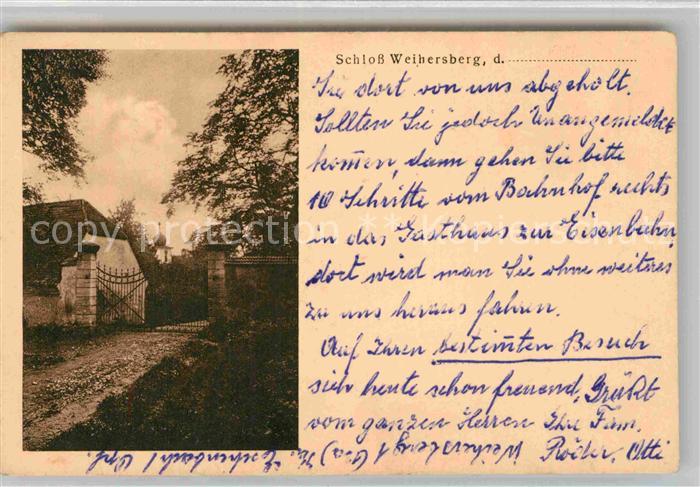 Schloß Weihersberg, d.
Sie dort von uns abgeholt.
Sollten Sie jedoch Unangemeldet
kom̄en, dann gehen Sie bitte
10 Schritte vom Bahnhof rechts
in das Gasthaus zur Eisenbahn,
dort wird man Sie ohne weiteres
zu uns heraus fahren.
Auf Ihren bestim̄ten Besuch
sich heute schon freuend, Grüßt
vom ganzen Herzen Ihre Fam.
Röder, Otti
Weihersberg 1
Eschenbach / Opf.
copyright ** Kopierschutz